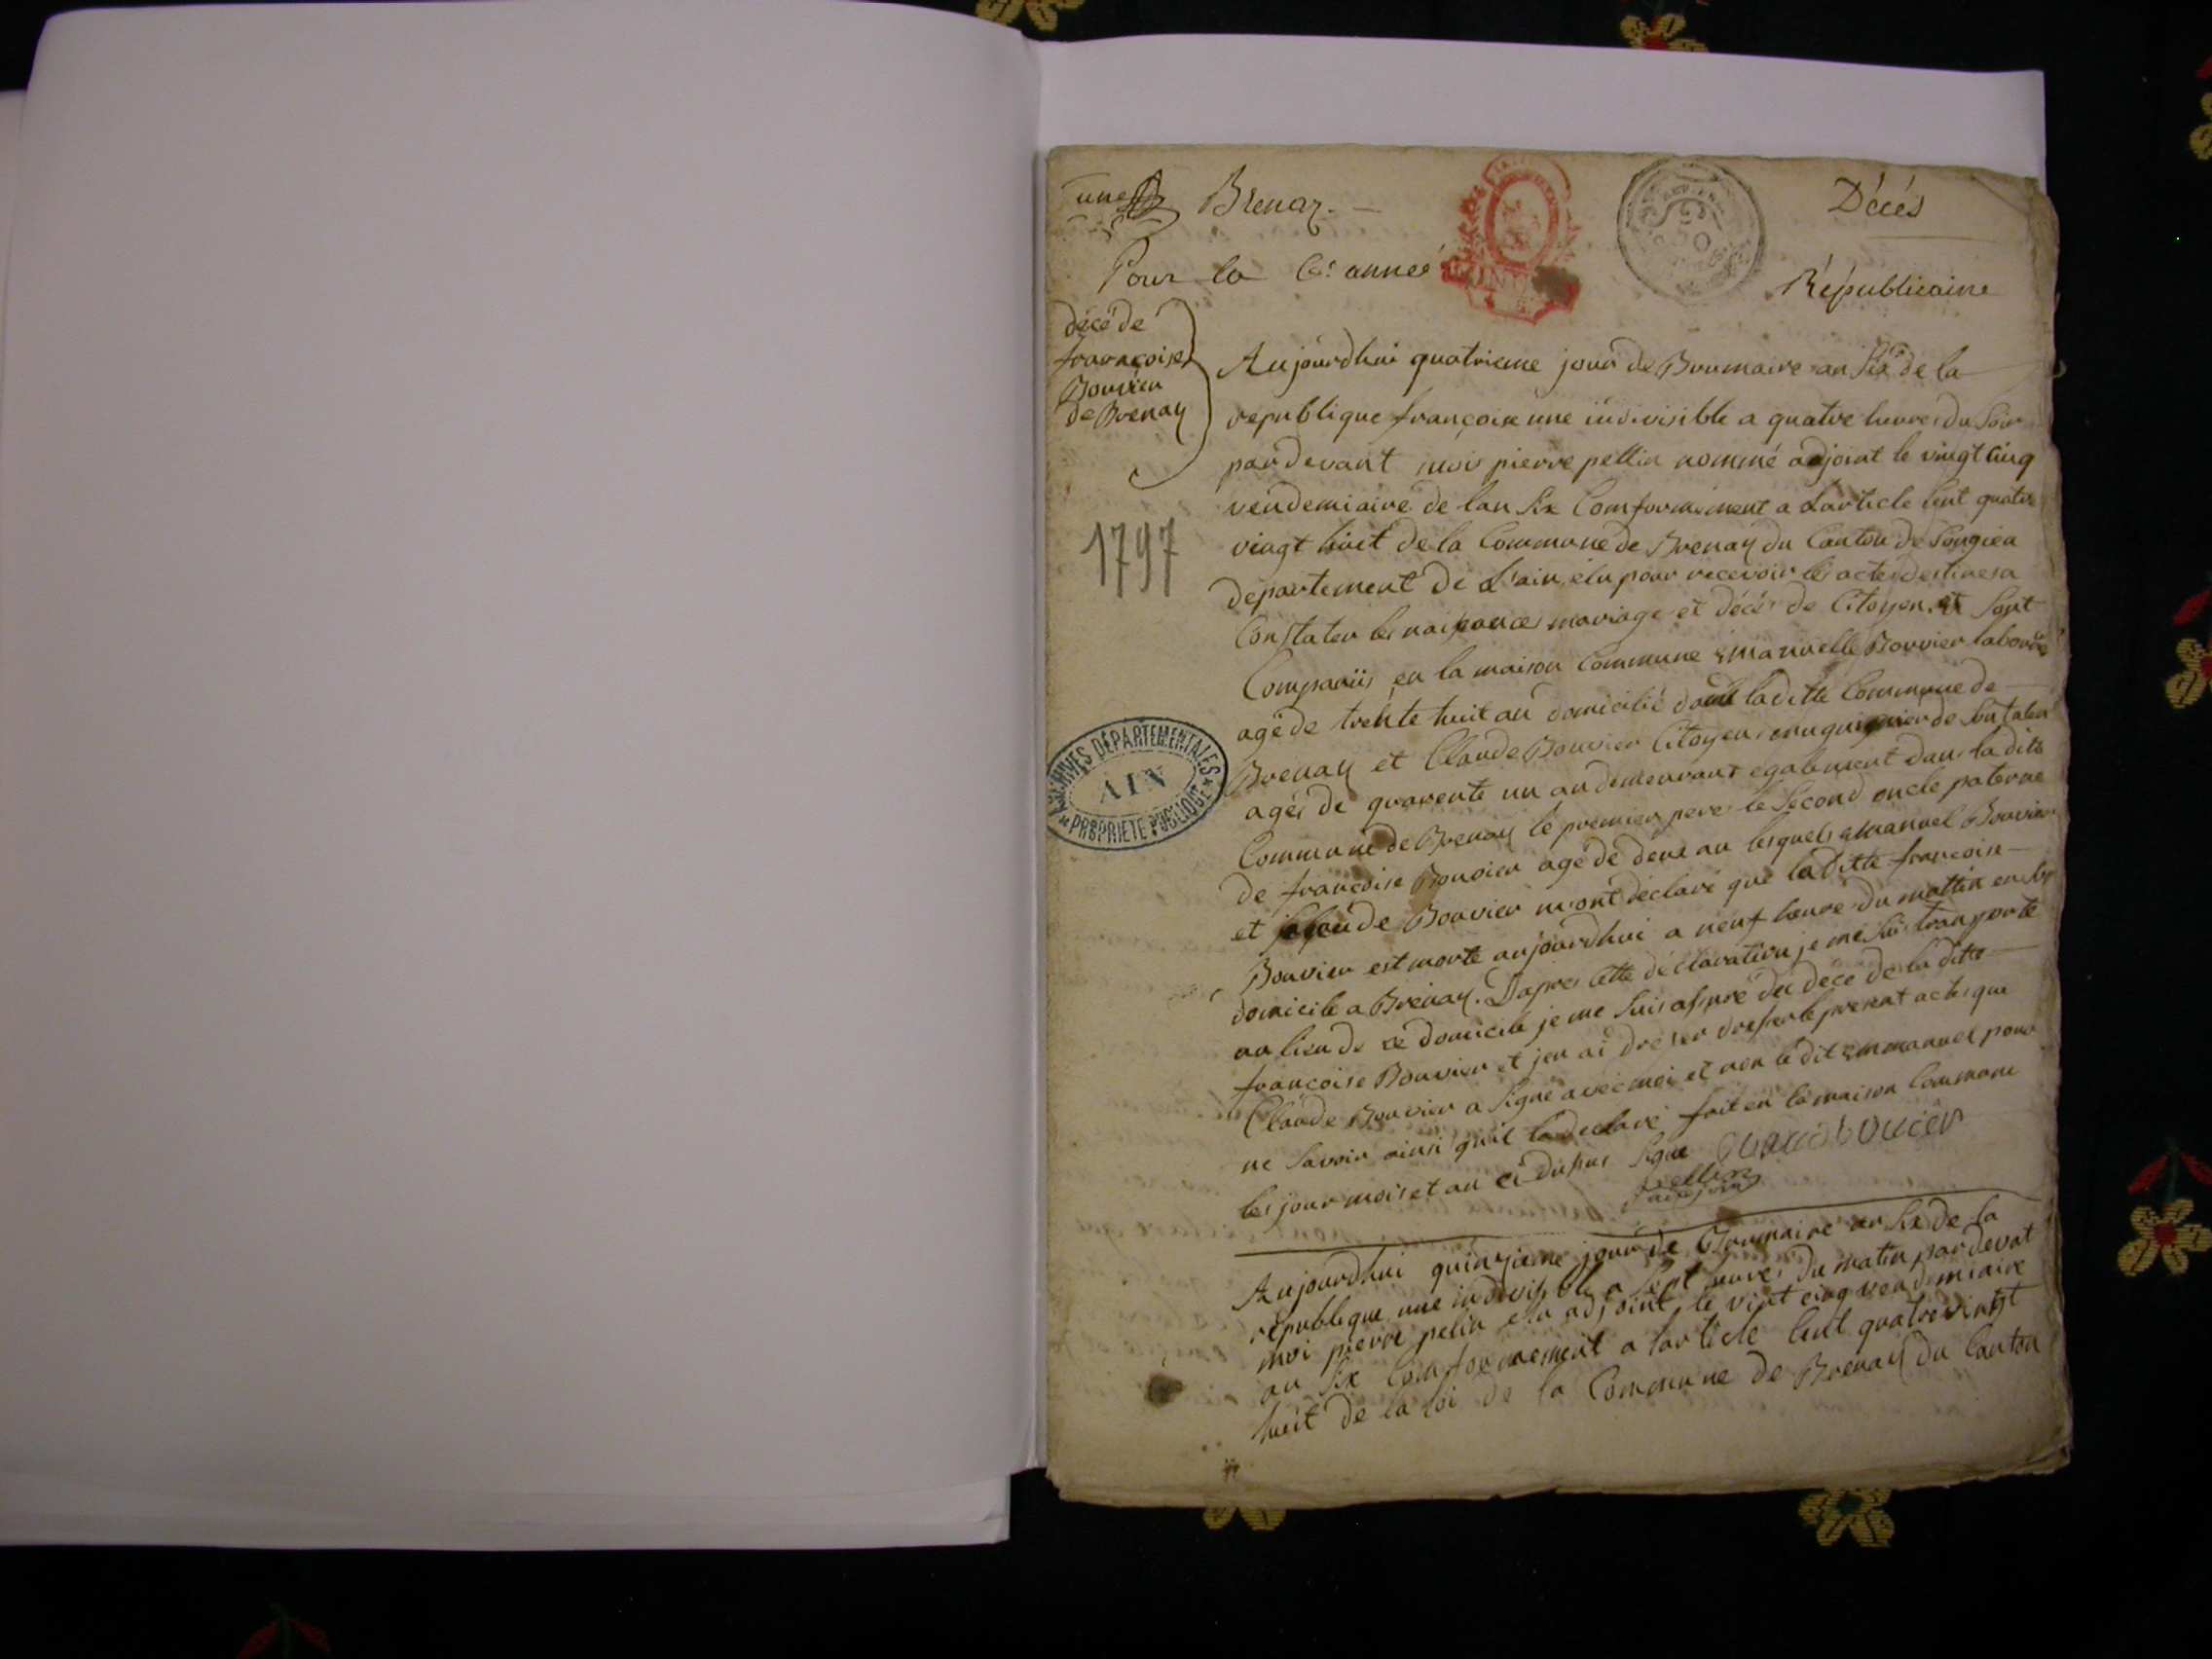 une Brenaz. Décés
Pour la 6e. année Républicaine
décé de
francoise
Bouvier
de Brenay
1797
Aujourdhui quatrieme jour de Brumaire an six de la
republique françoise une indivisible a quatre heures du soir
pardevant moi pierre pellin nommé adjoint le vingt cinq
vendemiaire de lan six Comformement a larticle cent quatre
vingt huit de la Commune de Brenay du Canton de Songieu
departement de L'ain, élu pour recevoir les actes destines a
Constater les naissances mariage et décés de Citoyen, et sont
Comparüs en la maison Commune emanuelle Bouvier
agé de trente huit an domicilié dans la ditte Commune de
Brenay et Claude Bouvier Citoyen de son
agés de quarente un an demeurant egalement dans la ditte
Commune de Brenay le premier pere le second oncle paterne
de francoise Bouvier agé de deux an lesquels emanuel Bouvier
et Claude Bouvier mont déclaré que la ditte francoise
Bouvier est morte aujourdhui a neuf heure du mattin en son
domicile a Brenay. Dapres cette déclaration je me suis transporté
au lieu de ce domicile je me suis assuré du décé de la ditte
francoise Bouvier et jen ai dresser le present acte que
Claude Bouvier a signé avec moi et non le dit emmanuel pour
ne savoir ainsi quil la declaré fait en la maison Commune
les jour mois et an ci dussus signe
pellin
Aujourdhui quinzieme jour de Brumaire an six de la
republique une indivisible a sept heures du matin pardevat
moi pierre pelin elu adjoint le vint cinq vendemiaire
an six Comformement a larticle Cent quatrevingt
huit de la loi de la Commune de Brenay du Canton
ARCHIVES DÉPARTEMENTALES
AIN
PROPRIÉTÉ PUBLIQUE